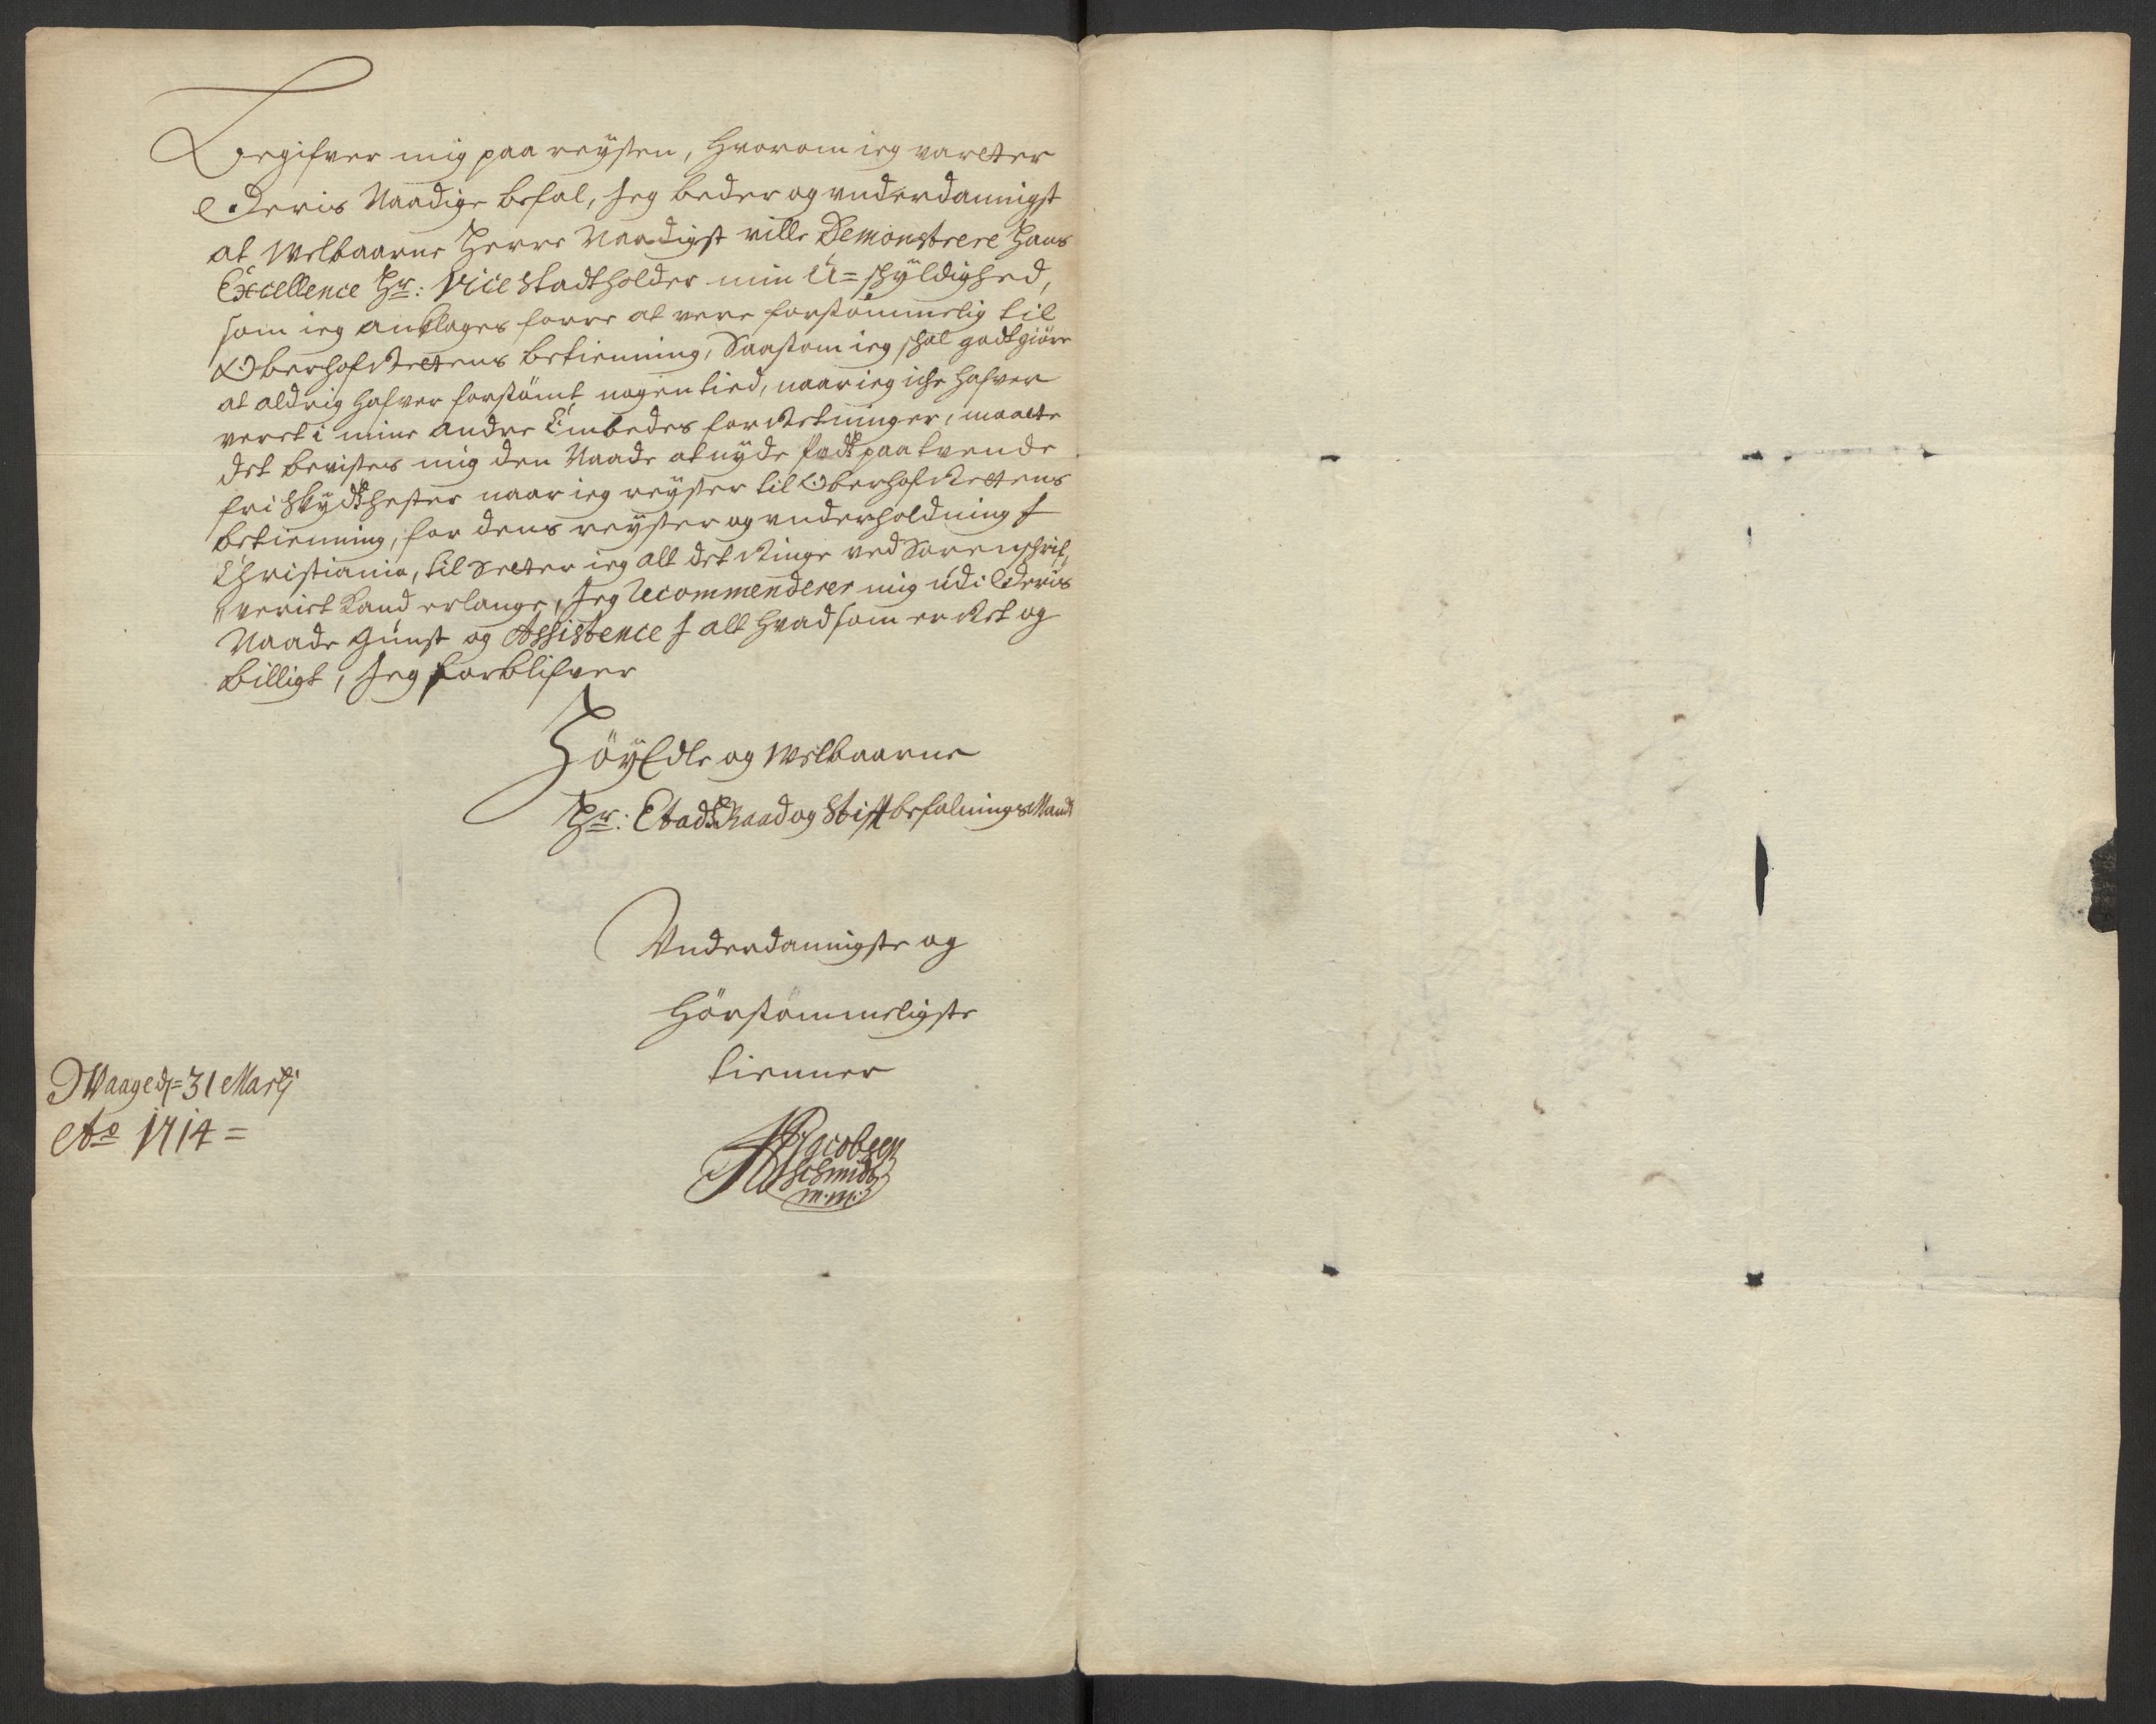 Begifver mig paa reÿsen, hvorom ieg varcter
Deris Naadige befal, Jeg beder og underdannigst
at Welbaarne Herre Naadigst ville Demonstrere Hans
Excellence Hr: Vice Stadtholder min U=schÿldighed,
som ieg anklages forre at vere forsömmelig til
OberhofRettens betienning, Saasom ieg schal godtgiöre
at aldrig hafver forsömt nogen tied, naar ieg iche hafver
veret i mine andre Embedes forRetninger, maatte
det bevises mig den Naade at nÿde paa tvende
fri Skÿdtshester naar ieg reÿser til OberhofRettens
betienning, for dens reÿser og underholdning J
Christiania, til Setter ieg alt det Ringe ved Sorenschrif,
"veriet kand erlange, Jeg Recommenderer mig udi Deris
Naade Gunst og Assistence J alt hvad som er Ret og
billigt, Jeg forblifver
HöÿEdle og Welbaarne
Hr: Etadts Raad og Stiftbefalnings Mands
Underdannigste og
hörsommeligste
tienner
Waage d= 31 Martj
Ao 1714=
Jacobsen
Schmidt
m.m.